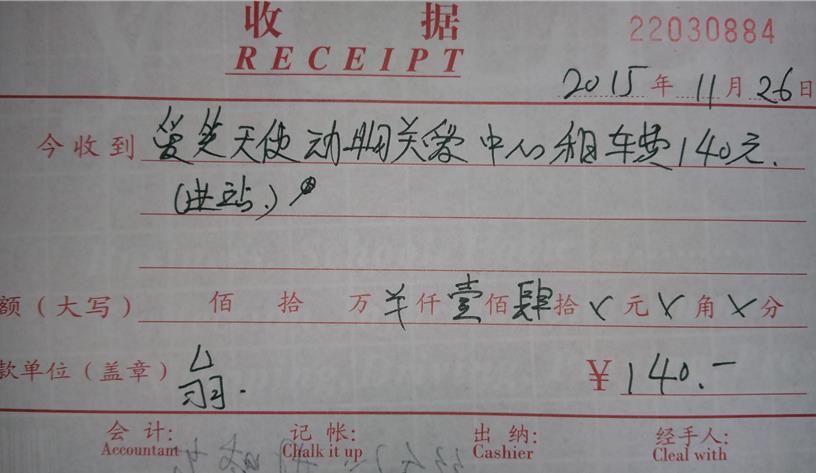 收据
22030884
RECEIPT
2015年11月26日
今收到 爱笑天使动物关爱中心租车费140元.
(进站.)
额(大写) 佰 拾 万 羊 仟 壹 佰 肆 拾 元 角 分
款单位(盖章) ¥140.-
会计: 记帐: 出纳: 经手人:
Accountant Chalk it up Cashier Cleal with